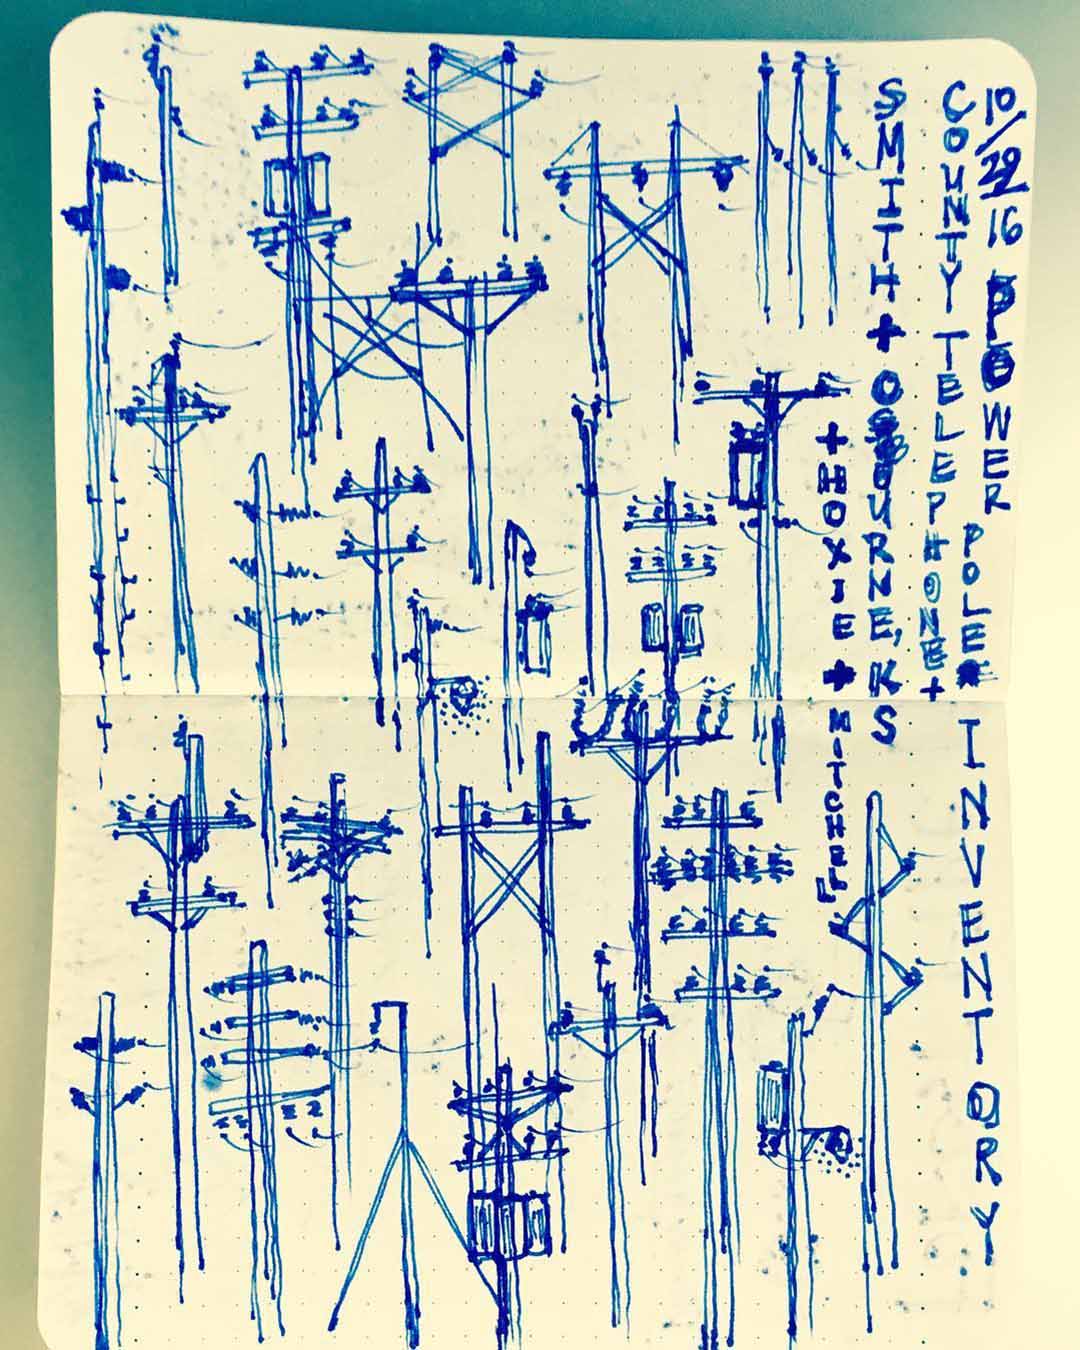 10/29/16 POWER POLE INVENTORY
COUNTY TELEPHONE +
SMITH + OSBURNE, KS
+ HOXIE + MITCHELL